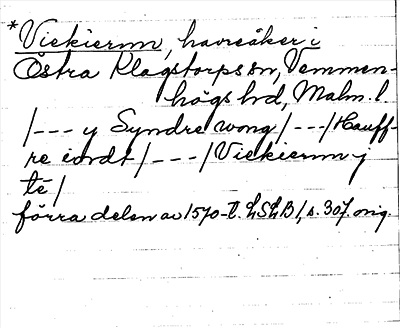 *Viekiernn, havreåker i
Östra Klagstorps sn, Vemmen-
högs hd, Malm. l.
/--- y Syndre wong/---/Hauff-
re iordt/---/Viekiernn y
té/
förra delen av 1570-t. LSLB 1, s. 307 orig.